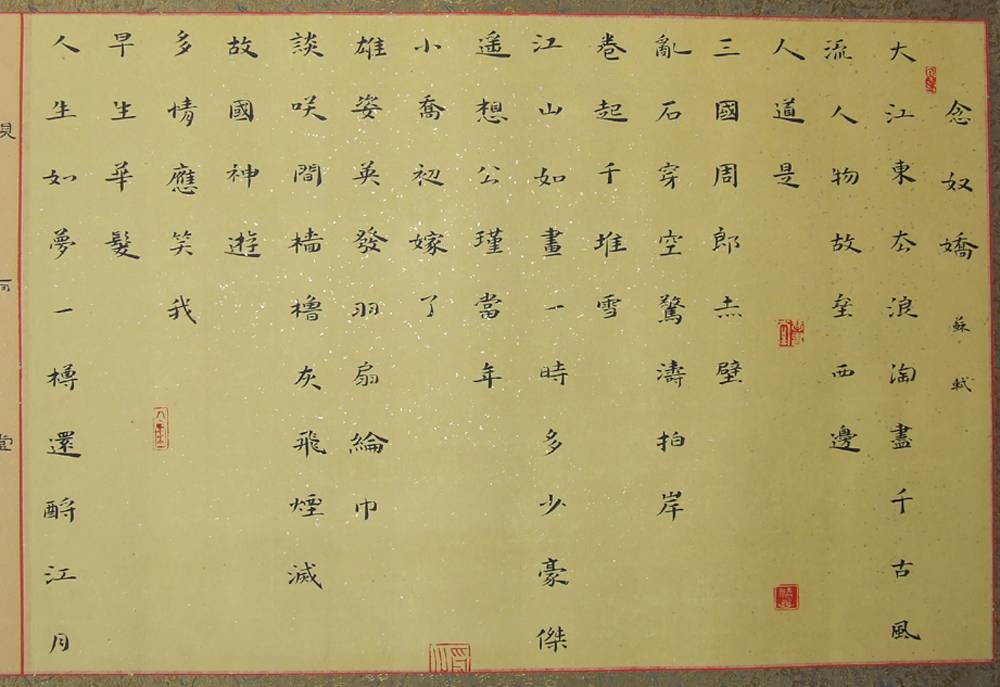 念奴嬌 蘇軾
大江東去浪淘盡千古風
流人物故壘西邊
人道是
三國周郎赤壁
亂石穿空驚濤拍岸
卷起千堆雪
江山如畫一時多少豪傑
遥想公瑾當年
小喬初嫁了
雄姿英發羽扇綸巾
談咲間檣櫓灰飛煙滅
故國神遊
多情應笑我
早生華髮
人生如夢一樽還酹江月